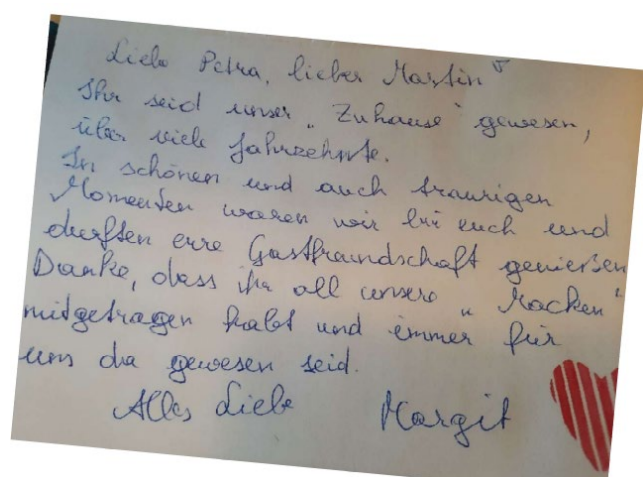 Liebe Petra, lieber Martin
Ihr seid unser „Zuhause" gewesen,
über viele Jahrzehnte.
In schönen und auch traurigen
Momenten waren wir bei euch und
durften eure Gastfreundschaft genießen
Danke, dass ihr all unsere „Macken"
mitgetragen habt und immer für
uns da gewesen seid.
Alles Liebe Margit